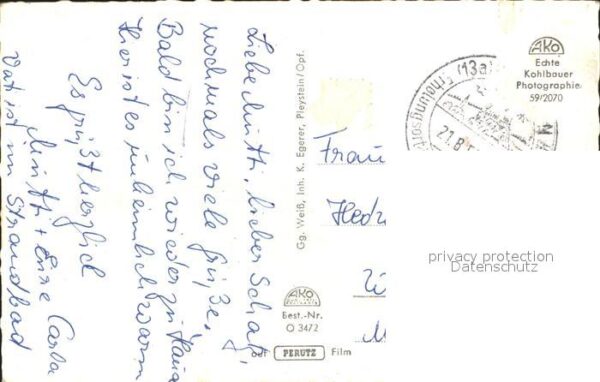 Liebe Mutti, lieber Schatz,
nochmals viele Grüße.
Bald bin ich wieder zu Hause
Hier ist es unheimlich warm
Es grüßt herzlich
Mutti + Eure Carla
Vati ist im Strandbad
Gg. Weiß, Inh. K. Egerer, Pleystein/Opf.
AKO
Best.-Nr.
O 3472
auf PERUTZ Film
AKO
Echte
Kohlbauer
Photographie
59/2070
(13a)
Erholungsort
Frau
privacy protection
Datenschutz